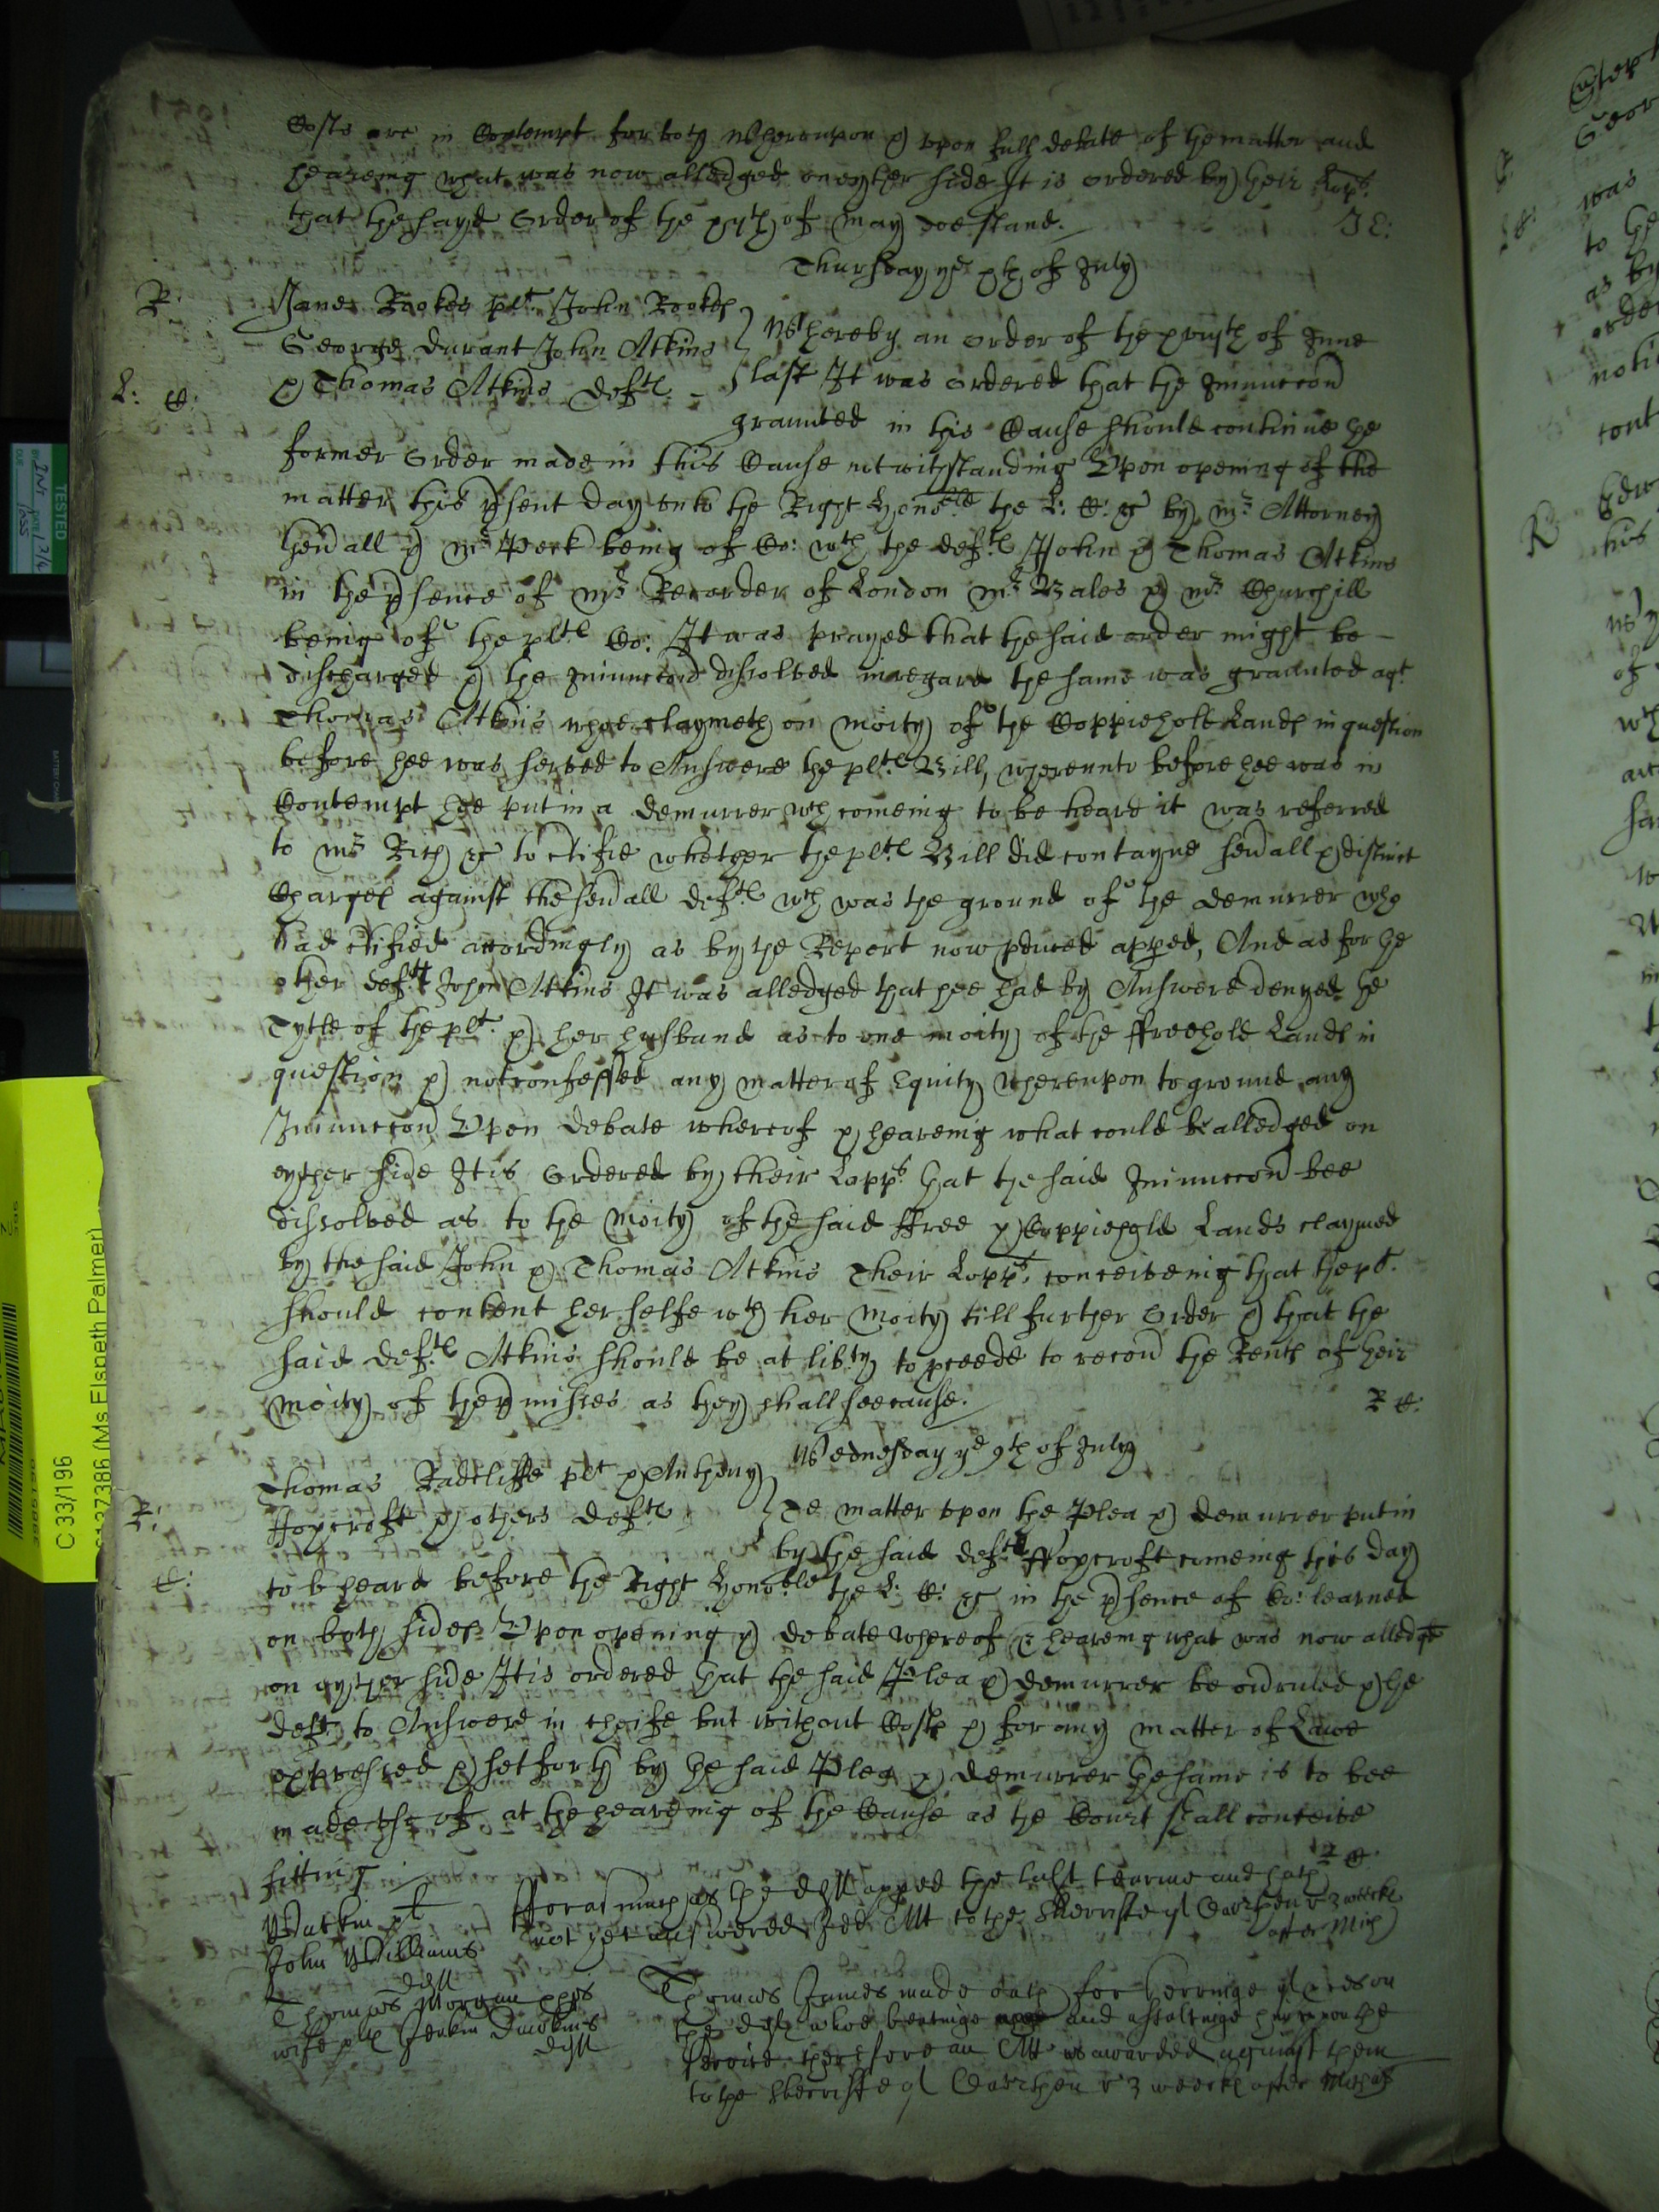 Costs are in Contempt for both Whereupon & upon full debate of the matter and
heareing what was now alledged on eyther side It is ordered by their Lopps
that the sayd Order of the xijth of May doe stand. J E:
Thursday ye xth of July
R: Jane Rookes plt John Rookes
George Durant John Atkins } Whereby an order of the xviijth of June
L: C: & Thomas Atkins Deftes - last It was ordered that the Iniunccon
graunted in this Cause should continue the
former Order made in this Cause notwithstanding Upon opening of the
matter this psent day unto the Right Honoble the L: C: &c by Mr Attorney
Gen'all & Mr Peck being of Co: wth the deftes John & Thomas Atkins
in the psence of Mr Recorder of London Mr Wales & Mr Churchill
being of the pltes Co: It was prayed that the said order might be -
discharged & the Iniunccon dissolved in regard the same was graunted agt
Thomas Atkins whoe claymeth on moity of the Coppiehold Landes in question
before hee was served to Answere the pltes Bill, whereunto before hee was in
Contempt he put in a demurrer wch comeing to be heard it was referred
to Mr Rich &c to ctifie whether the pltes Bill did contayne sev'all & distinct
Charges against the sev'all deftes wch was the ground of the demurrer who
had ctified accordingly as by the Report now pduced apped, And as for the
other deft John Atkins It was alledged that hee had by Answere denyed the
Tytle of the plt & her husband as to one moity of the ffreehold Landes in
question & not confessed any matter of Equity whereupon to ground any
Iniunccon Upon debate whereof & heareing what could be alledged on
eyther side It is Ordered by their Lopps that the said Iniunccon bee
dissolved as to the moity of the said ffree & Coppiehold Lands claymed
by the said John & Thomas Atkins Their Lopps conceiveing that the plt
should content her selfe wth her moity till further Order & that the
said deftes Atkins should be at libty to pceede to recov' the Rents of their
moity of the pmisses as they shall see cause. R C:
Wednesday ye 9th of July
Thomas Radcliffe plt & Anthony
R: ffoxcroft & others deftes } The matter upon the Plea & demurrer put in
by the said deft ffoxcroft comeing this day
C: to b heard before the Right Honoble the L: C: &c in the psence of Co: learned
on both sides Upon opening & debate whereof & heareing what was now alledged
on eyther side It is ordered that the said Plea & demurrer be ov'ruled & the
deft to Answere in cheife but without Costs & for any matter of Lawe
expressed & set forth by the said Plea & demurrer the same is to bee
made use of at the heareing of the Cause as the Court shall conceive
fitting. R C:
Watkin plt fforasmuch as the deft apped the last tearme and hath
John Williams not yet answered Ideo Att to the Sherriffe of Carthen r 3 weekes
deft after Mich
Thomas Morgan
wife plt Jenkin
deft
Thomas James made oath for serveinge of
the deft whoe beateinge and assaltinge him upon the
service therefore an Att is awarded against them
to the Sherriffe of Carthen r 3 weekes after Michas
TESTED
C 33/196
(Ms Elsneth Palmer)